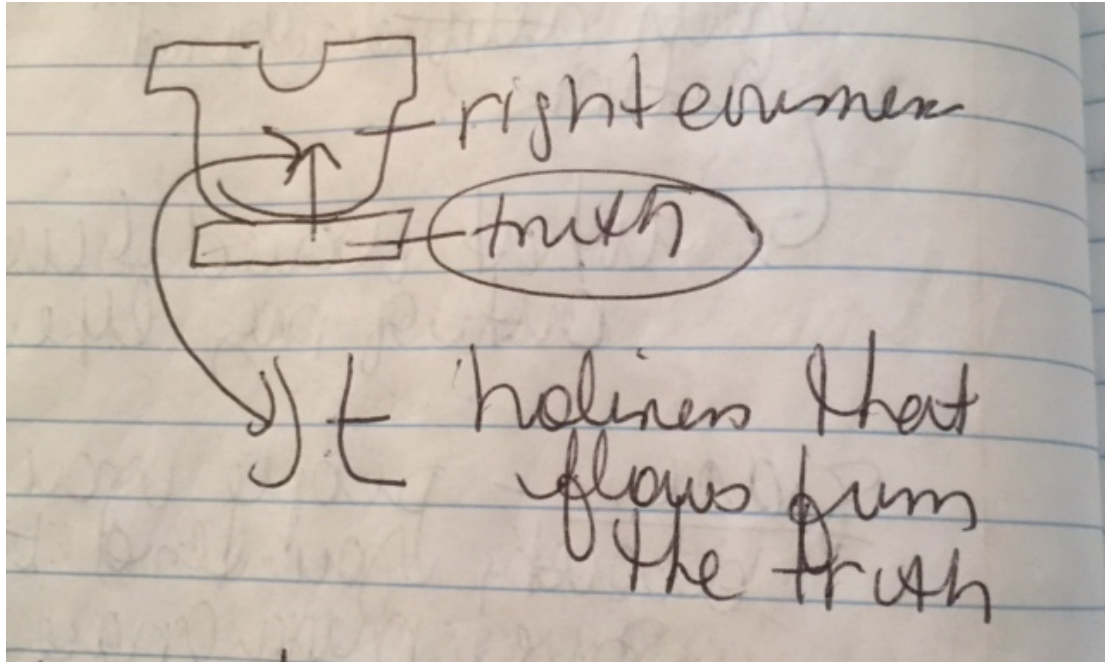 righteousness
truth
holiness that
flows from
the truth